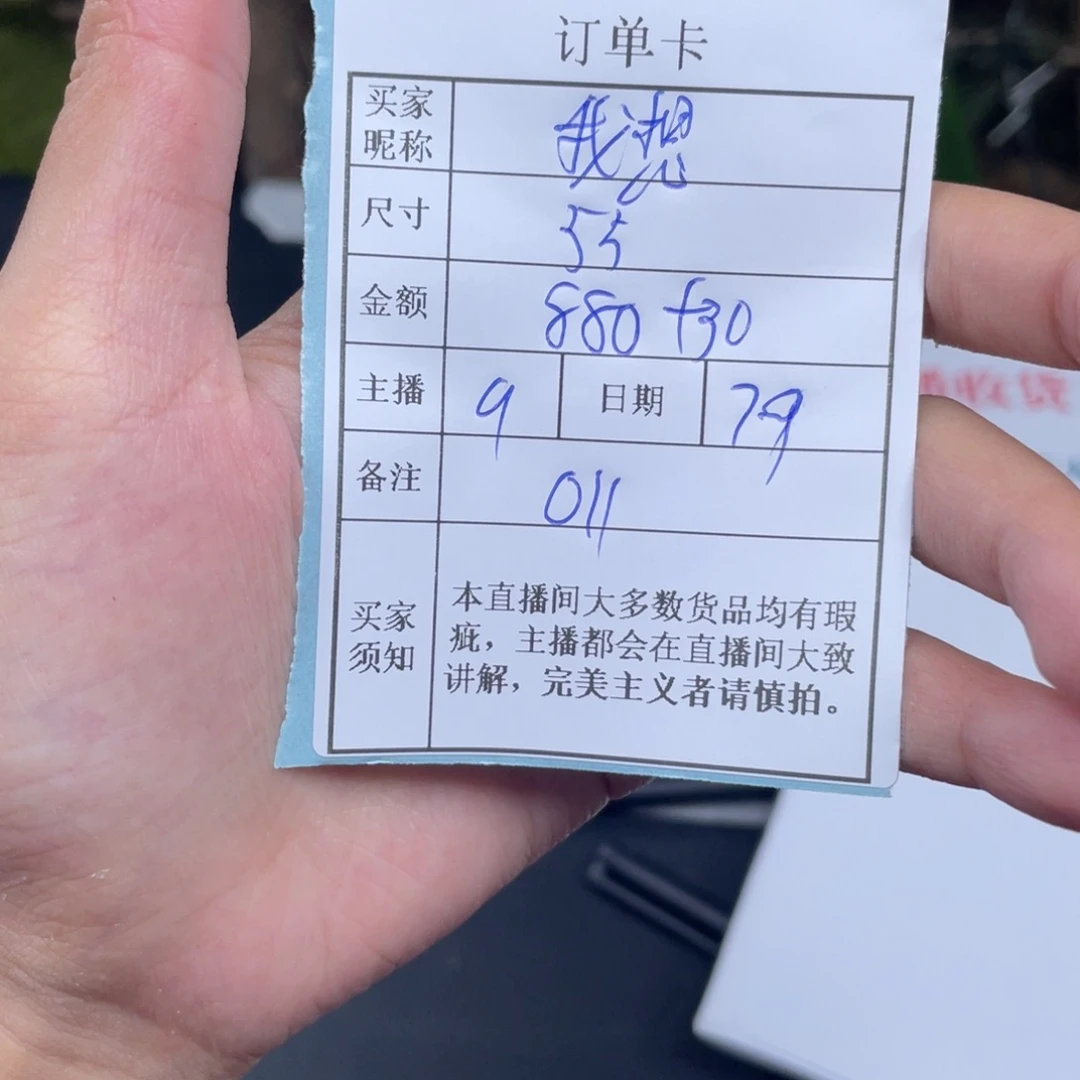 订单卡
买家昵称 我想
尺寸 55
金额 880+30
主播 9 日期 7.9
备注 011
买家须知
本直播间大多数货品均有瑕
疵，主播都会在直播间大致
讲解，完美主义者请慎拍。
收货